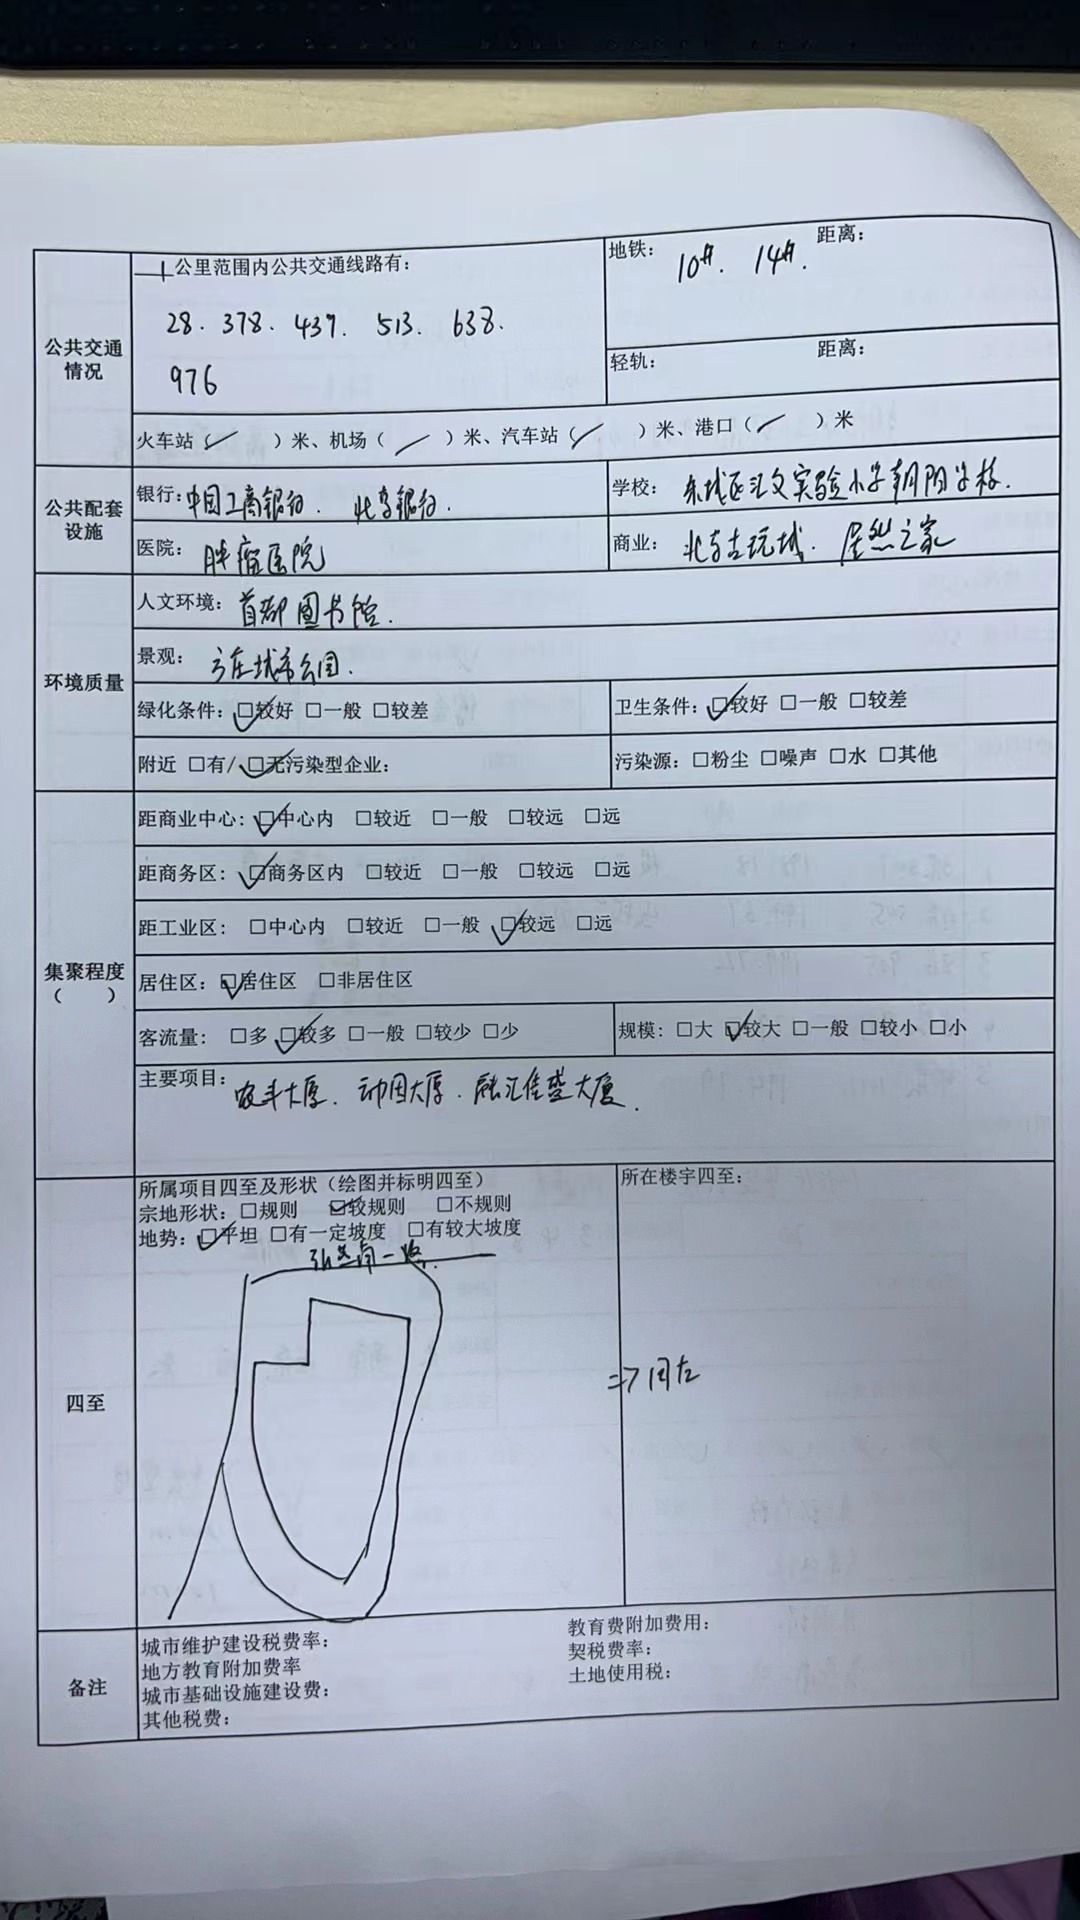 公共交通情况
1公里范围内公共交通线路有：
28. 378. 439. 513. 638.
976
地铁： 10号. 14号. 距离：
轻轨： 距离：
火车站（/）米、机场（/）米、汽车站（/）米、港口（/）米
公共配套设施
银行：中国工商银行. 北京银行.
学校：东城区汇文实验小学朝阳学校.
医院：肿瘤医院
商业：北京古玩城. 居然之家
环境质量
人文环境：首都图书馆.
景观：方庄城市公园.
绿化条件：☑较好 □一般 □较差
卫生条件：☑较好 □一般 □较差
附近 □有/☑无污染型企业：
污染源：□粉尘 □噪声 □水 □其他
集聚程度（ ）
距商业中心：☑中心内 □较近 □一般 □较远 □远
距商务区：☑商务区内 □较近 □一般 □较远 □远
距工业区：□中心内 □较近 □一般 ☑较远 □远
居住区：☑居住区 □非居住区
客流量：□多 ☑较多 □一般 □较少 □少
规模：□大 ☑较大 □一般 □较小 □小
主要项目：农丰大厦. 动因大厦. 融汇佳盛大厦.
四至
所属项目四至及形状（绘图并标明四至）
宗地形状：□规则 ☑较规则 □不规则
地势：☑平坦 □有一定坡度 □有较大坡度
南一路.
所在楼宇四至：
=>同左
备注
城市维护建设税费率：
地方教育附加费率
城市基础设施建设费：
其他税费：
教育费附加费用：
契税费率：
土地使用税：